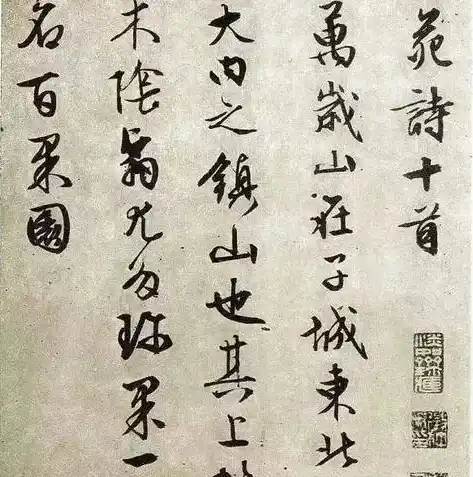 苑詩十首
萬歲山在子城東北
大內之鎮山也其上
木陰翳尤多珍果一
名百果園